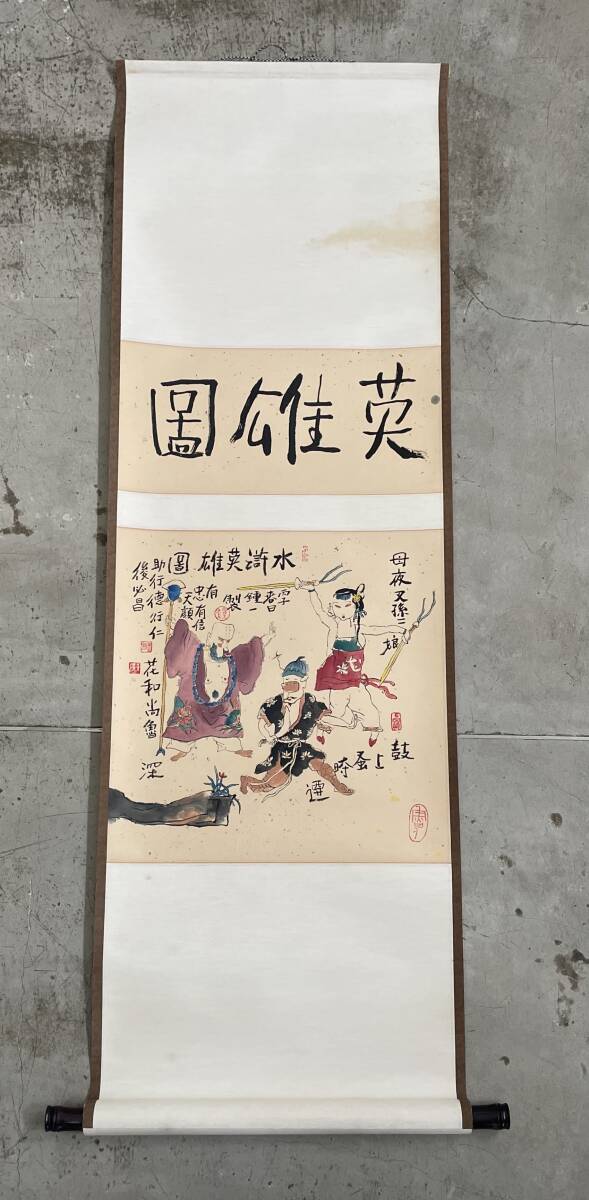 英雄圖
水滸英雄圖
母夜叉孫二娘
鼓上蚤時遷
花和尚魯深
有忠有信
天顏
助行德行仁
後必昌